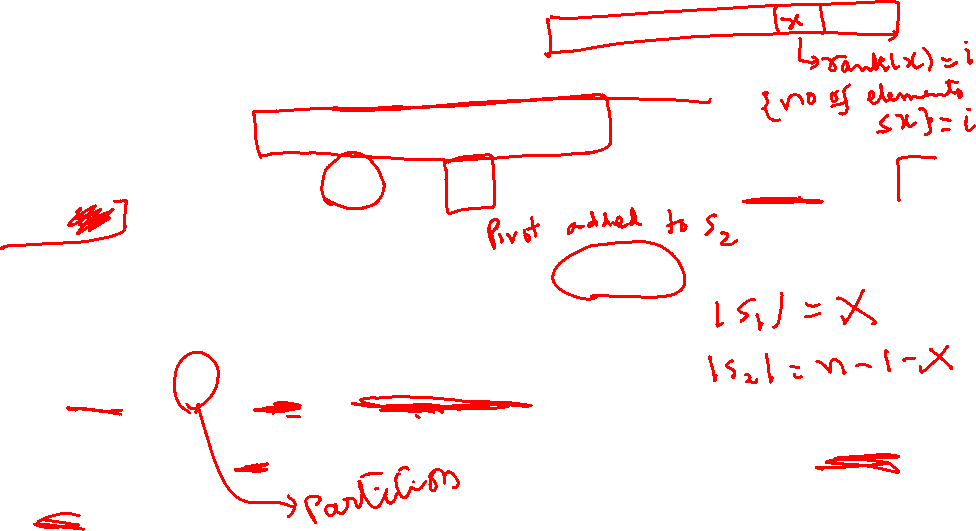 x
rank(x) = i
{no of elements
≤x} = i
Pivot added to S2
|S1| = X
|S2| = n-1-X
Partition